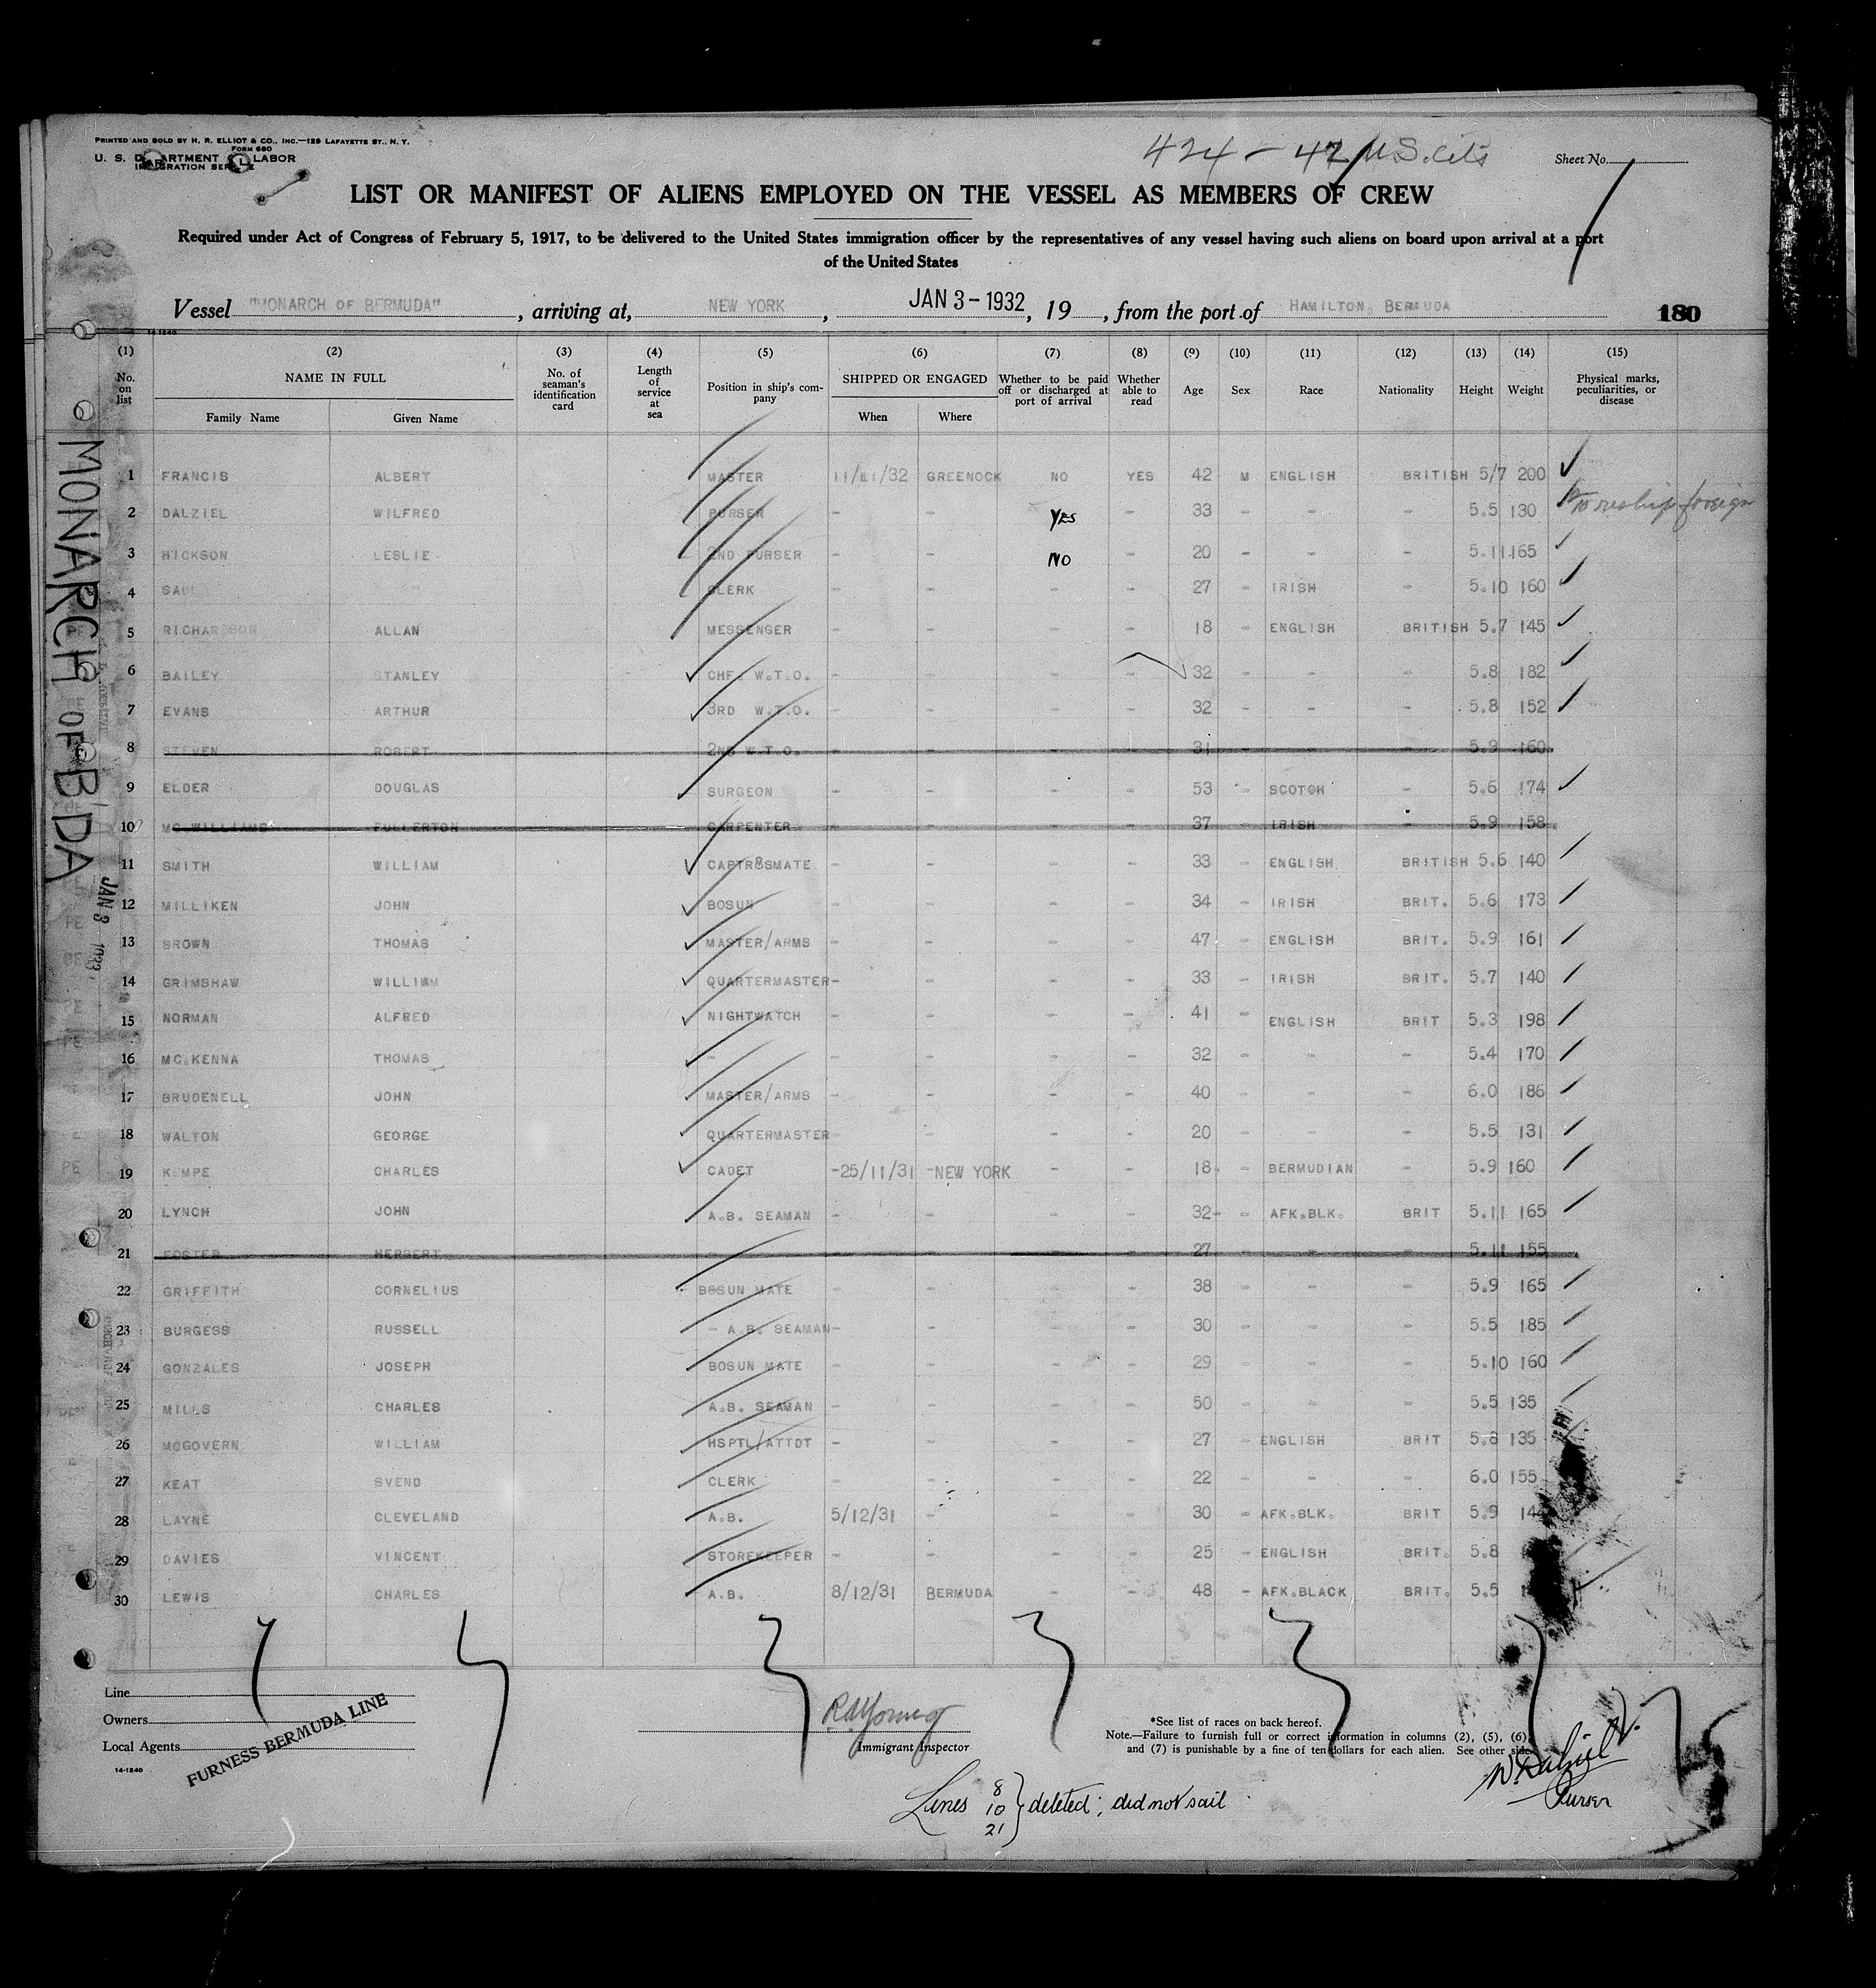 PRINTED AND SOLD BY H. R. ELLIOT & CO., INC.—129 LAFAYETTE ST., N. Y.
FORM 680
U. S. DEPARTMENT OF LABOR
IMMIGRATION SERVICE
424 - 42 U.S. cits
Sheet No.
LIST OR MANIFEST OF ALIENS EMPLOYED ON THE VESSEL AS MEMBERS OF CREW
Required under Act of Congress of February 5, 1917, to be delivered to the United States immigration officer by the representatives of any vessel having such aliens on board upon arrival at a port
of the United States
Vessel "MONARCH OF BERMUDA", arriving at, NEW YORK, JAN 3 - 1932, 19, from the port of HAMILTON, BERMUDA 180
14-1240
(1) (2) (3) (4) (5) (6) (7) (8) (9) (10) (11) (12) (13) (14) (15)
No. on list NAME IN FULL No. of seaman's identification card Length of service at sea Position in ship's company SHIPPED OR ENGAGED Whether to be paid off or discharged at port of arrival Whether able to read Age Sex Race Nationality Height Weight Physical marks, peculiarities, or disease
Family Name Given Name When Where
1 FRANCIS ALBERT MASTER 11/11/32 GREENOCK NO YES 42 M ENGLISH BRITISH 5/7 200
2 DALZIEL WILFRED PURSER - - YES - 33 - - - 5.5 130 to reship foreign
3 HICKSON LESLIE 2ND PURSER - - NO - 20 - - - 5.11 165
4 CLERK - - - - 27 - IRISH - 5.10 160
5 RICHARDSON ALLAN MESSENGER - - - - 18 - ENGLISH BRITISH 5.7 145
6 BAILEY STANLEY CHF. W.T.O. - - - 32 - - - 5.8 182
7 EVANS ARTHUR 3RD W.T.O. - - - - 32 - - - 5.8 152
8 STEVEN ROBERT 2ND W.T.O. - - - - 31 - - - 5.9 160
9 ELDER DOUGLAS SURGEON - - - - 53 - SCOTCH - 5.6 174
10 MC WILLIAMS FULLERTON CARPENTER - - - - 37 - IRISH - 5.9 158
11 SMITH WILLIAM CAPTR8SMATE - - - - 33 - ENGLISH BRITISH 5.6 140
12 MILLIKEN JOHN BOSUN - - - - 34 - IRISH BRIT. 5.6 173
13 BROWN THOMAS MASTER/ARMS - - - - 47 - ENGLISH BRIT. 5.9 161
14 GRIMSHAW WILLIAM QUARTERMASTER - - - - 33 - IRISH BRIT. 5.7 140
15 NORMAN ALFRED NIGHTWATCH - - - - 41 - ENGLISH BRIT 5.3 198
16 MC.KENNA THOMAS - - - - - 32 - - - 5.4 170
17 BRUDENELL JOHN MASTER/ARMS - - - - 40 - - - 6.0 186
18 WALTON GEORGE QUARTERMASTER - - - - 20 - - - 5.5 131
19 KEMPE CHARLES CADET -25/11/31 -NEW YORK - - 18 - BERMUDIAN - 5.9 160
20 LYNCH JOHN A.B. SEAMAN - - - - 32 - AFK.BLK. BRIT 5.11 165
21 FOSTER HERBERT - - - - - 27 - - - 5.11 155
22 GRIFFITH CORNELIUS BOSUN MATE - - - - 38 - - - 5.9 165
23 BURGESS RUSSELL - A.B. SEAMAN - - - - 30 - - - 5.5 185
24 GONZALES JOSEPH BOSUN MATE - - - - 29 - - - 5.10 160
25 MILLS CHARLES A.B. SEAMAN - - - - 50 - - - 5.5 135
26 MCGOVERN WILLIAM HSPTL/ATTDT - - - - 27 - ENGLISH BRIT 5.8 135
27 KEAT SVEND CLERK - - - - 22 - - - 6.0 155
28 LAYNE CLEVELAND A.B. 5/12/31 - - - 30 - AFK.BLK. BRIT 5.9
29 DAVIES VINCENT STOREKEEPER - - - - 25 - ENGLISH BRIT. 5.8
30 LEWIS CHARLES A.B. 8/12/31 BERMUDA - - 48 - AFK.BLACK BRIT. 5.5
MONARCH OF B/DA
JAN 3
Line
Owners
Local Agents
FURNESS BERMUDA LINE
14-1240
R.A. Young
Immigrant Inspector
*See list of races on back hereof.
Note.—Failure to furnish full or correct information in columns (2), (5), (6),
and (7) is punishable by a fine of ten dollars for each alien. See other side.
W. Dalziel
Purser
Lines 8
10 } deleted; did not sail
21